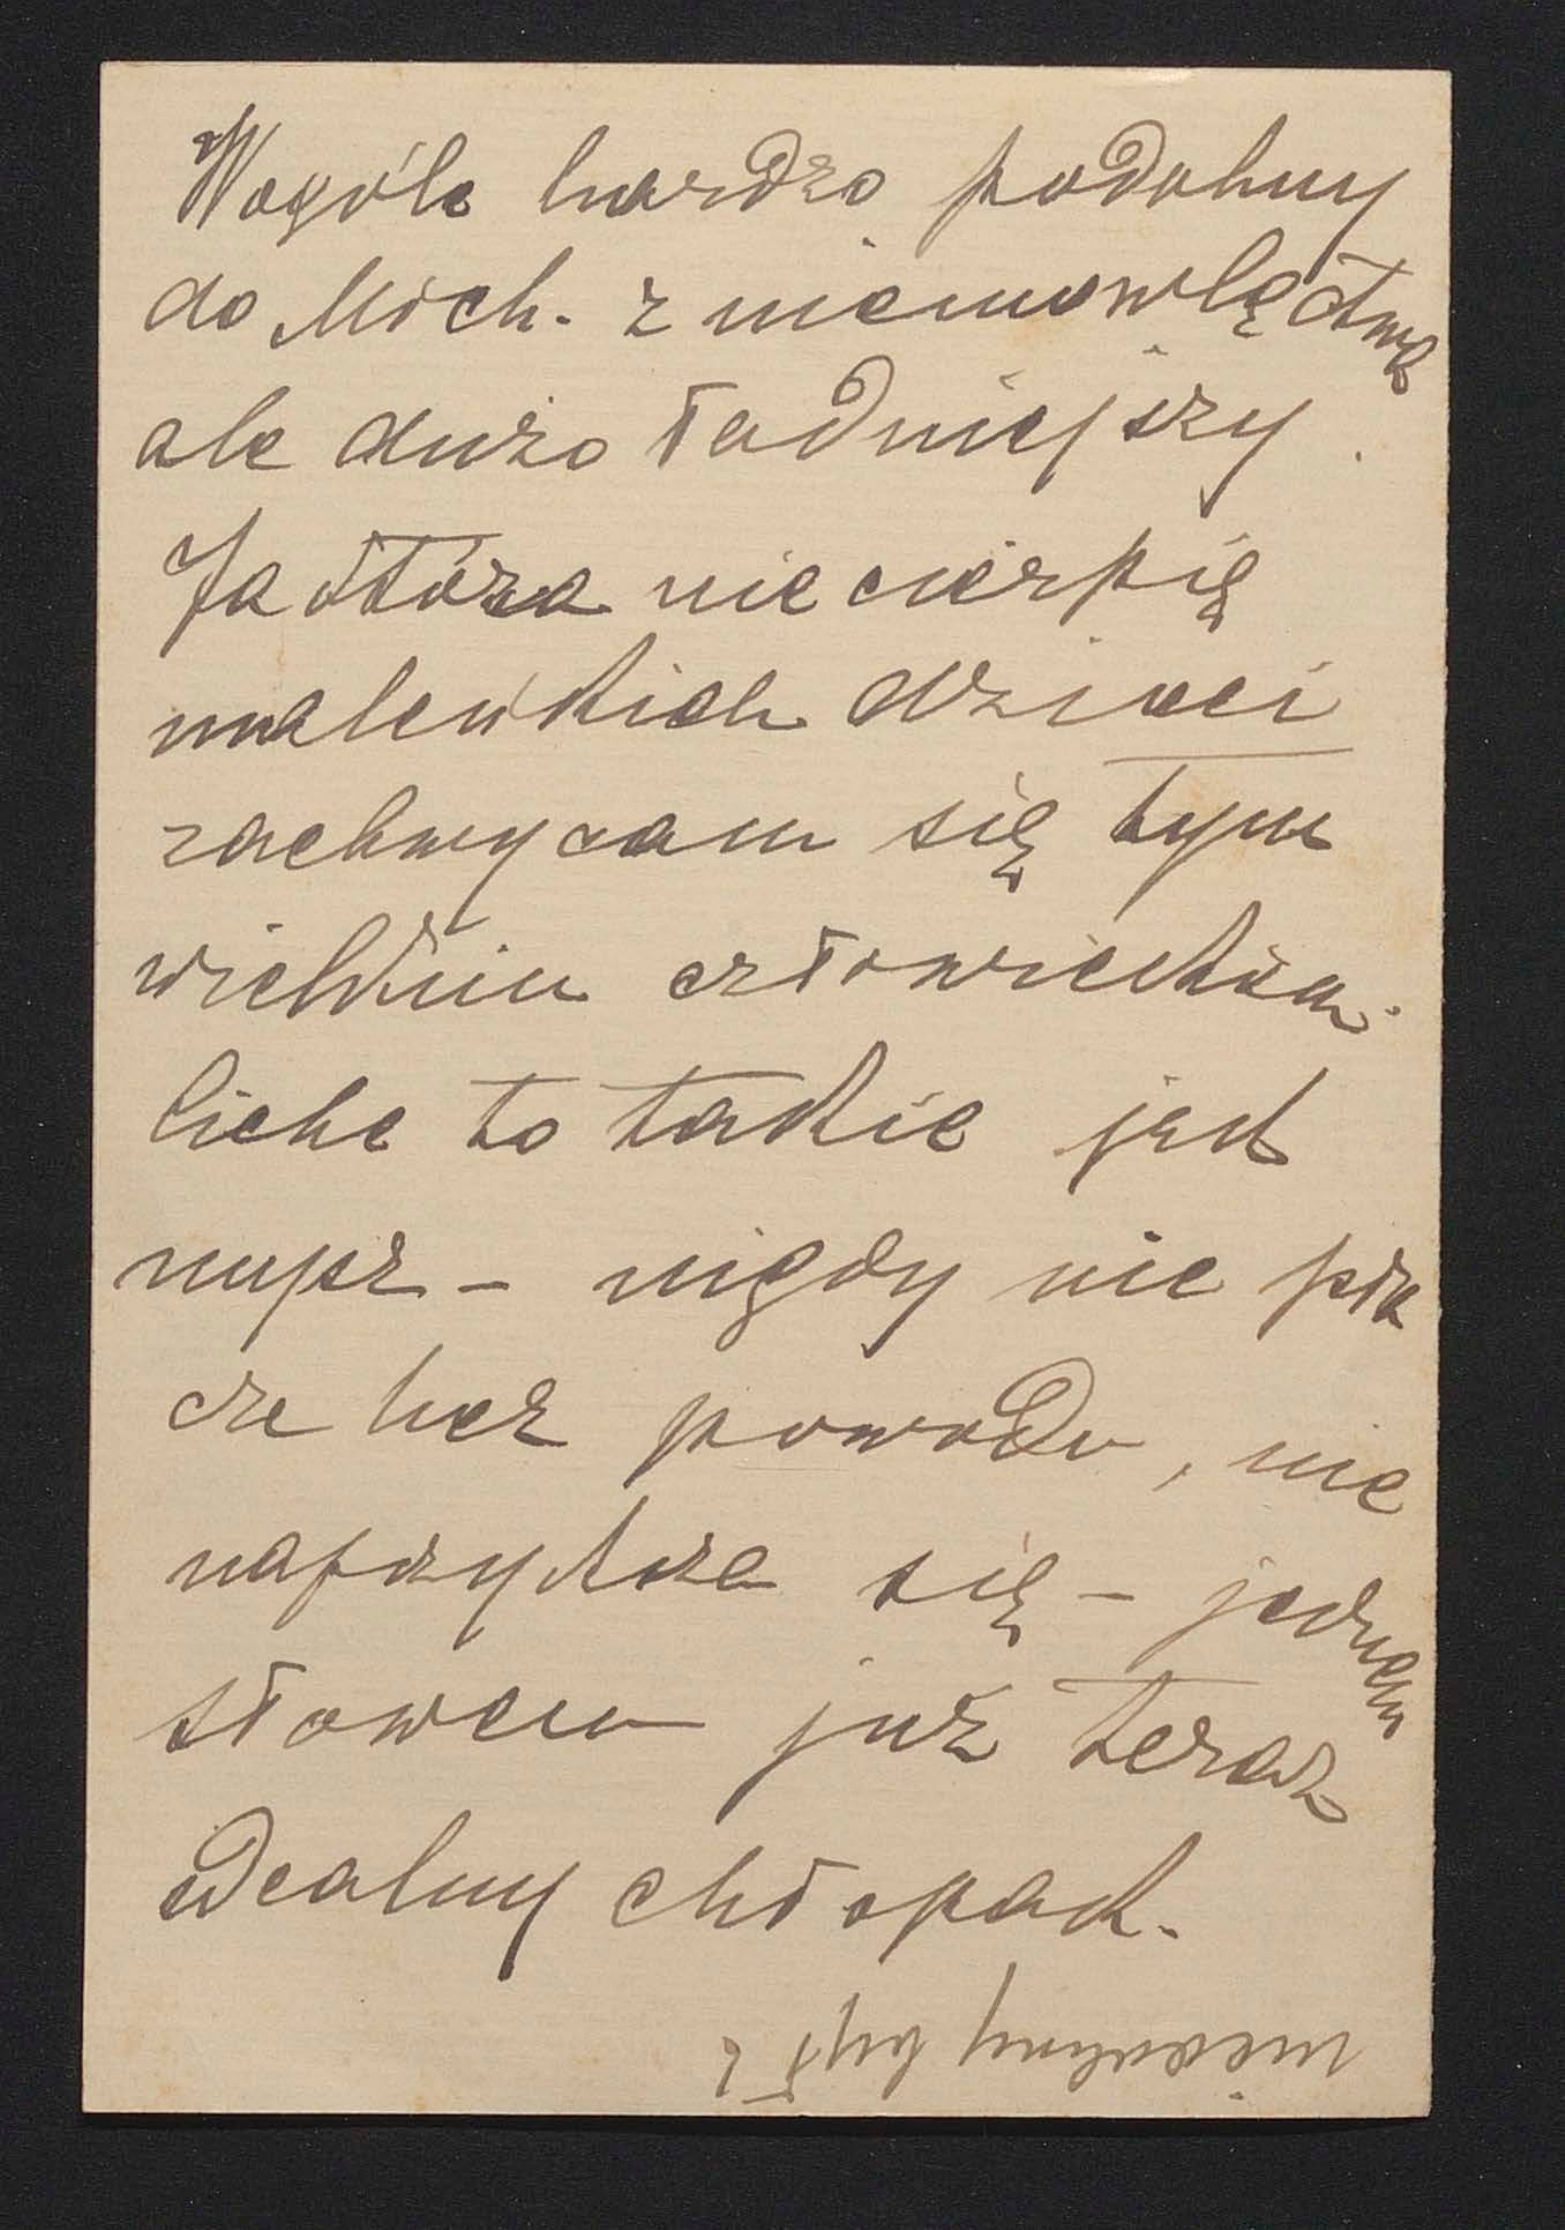 Wogóle bardzo podobny
do Mich. z niemowlęctwa
ale dużo ładniejszy.
Ja która nie cierpię
maleńkich dzieci
zachwycam się tym
wielkim człowiekiem.
Ciche to takie jest
nupż - nigdy nie pła
cze bez powodu, nie
naprzykrza się - jednem
słowem już teraz
idealny chłopak.
niedobry był z